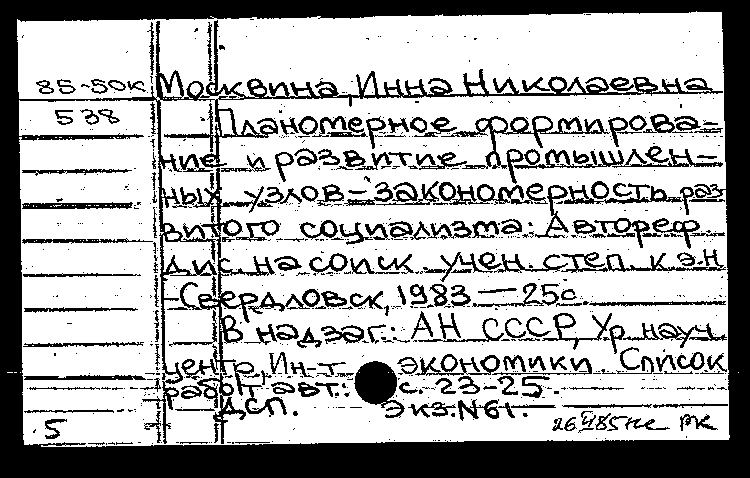 85-50к Москвина, Инна Николаевна
538 Планомерное формирова-
ние и развитие промышлен-
ных узлов - закономерность раз
витого социализма: Автореф
дис. на соиск. учен. степ. к.э.н
-Свердловск, 1983 — 25с
В надзаг.: АН СССР, Ур. науч.
центр, Ин-т экономики. Список
работ авт.: с. 23-25.
ДСП. Экз. N 61.
5